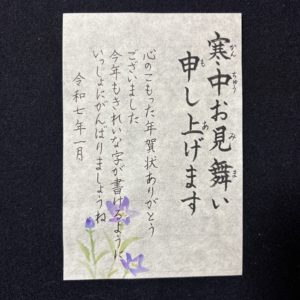 寒中お見舞い
申し上げます
心のこもった年賀状ありがとう
ございました
今年もきれいな字が書けるように
いっしょにがんばりましょうね
令和七年一月